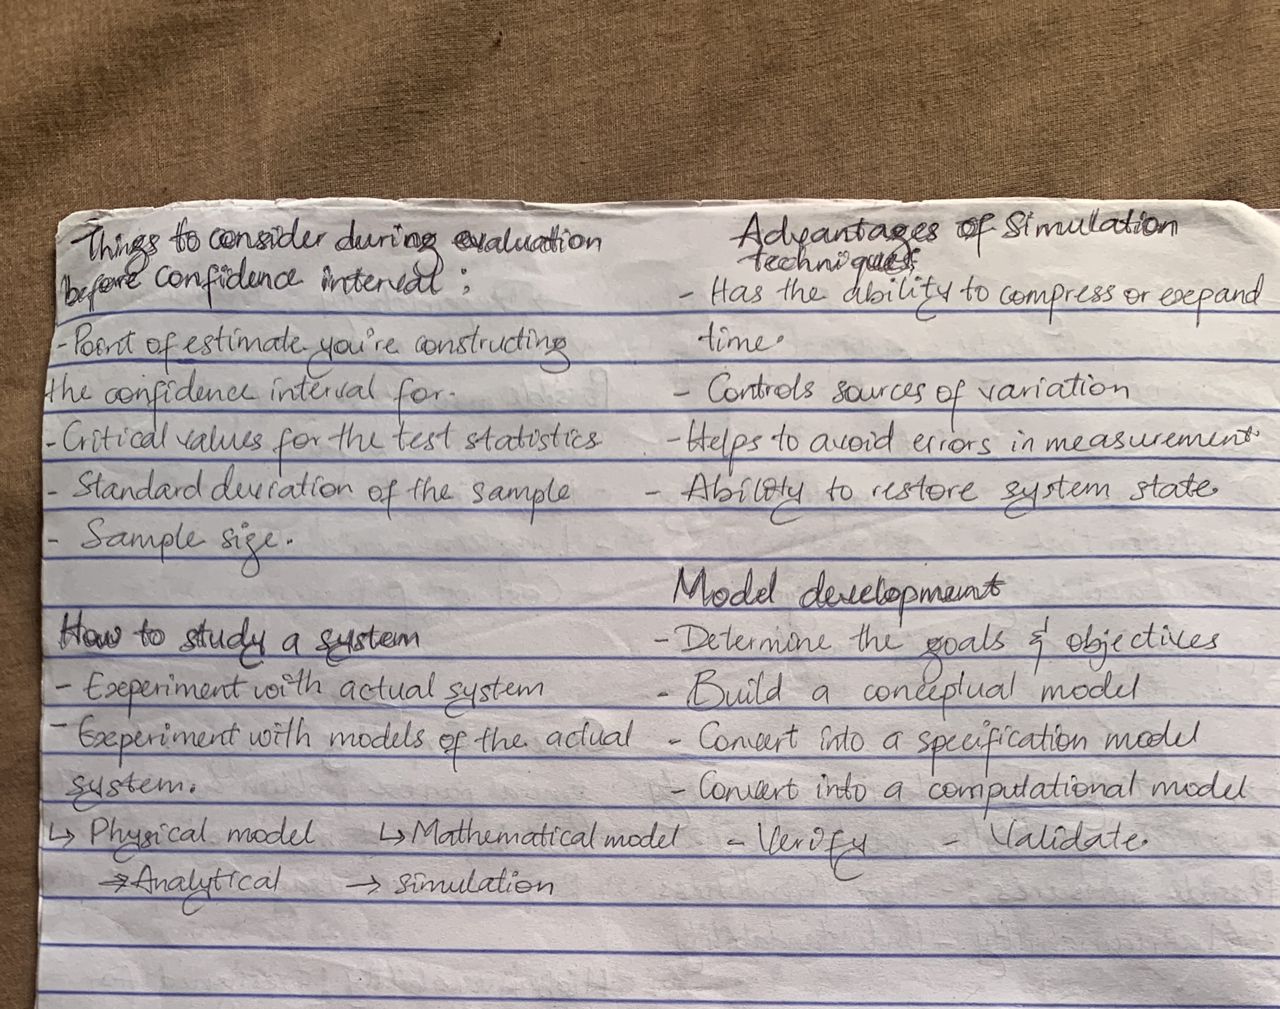 Things to consider during evaluation
before confidence interval ;
- Point of estimate you're constructing
the confidence interval for.
- Critical values for the test statistics
- Standard deviation of the sample
- Sample size.
How to study a system
- Experiment with actual system
- Experiment with models of the actual
system.
↳ Physical model ↳ Mathematical model
→ Analytical → simulation
Advantages of Simulation
techniques
- Has the ability to compress or expand
time.
- Controls sources of variation
- Helps to avoid errors in measurement.
- Ability to restore system state.
Model development
- Determine the goals & objectives
- Build a conceptual model
- Convert into a specification model
- Convert into a computational model
- Verify - Validate.